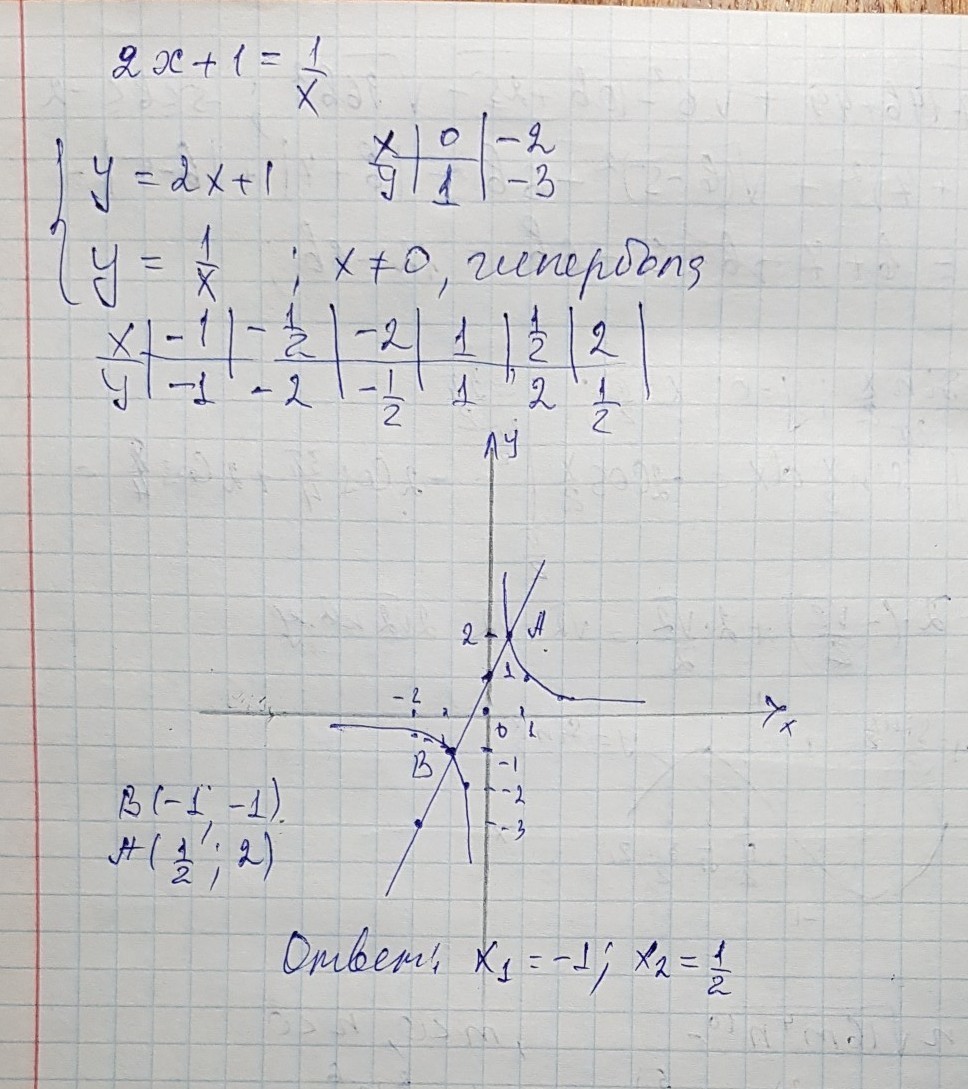 2x+1 = 1/x
{ y = 2x+1
x | 0 | -2
y | 1 | -3
y = 1/x ; x ≠ 0, гипербола
x | -1 | -1/2 | -2 | 1 | 1/2 | 2 |
y | -1 | -2 | -1/2 | 1 | 2 | 1/2
y
2 A
1
-2 0 1 x
B -1
-2
-3
B(-1; -1).
A(1/2; 2)
Ответ: x₁ = -1; x₂ = 1/2